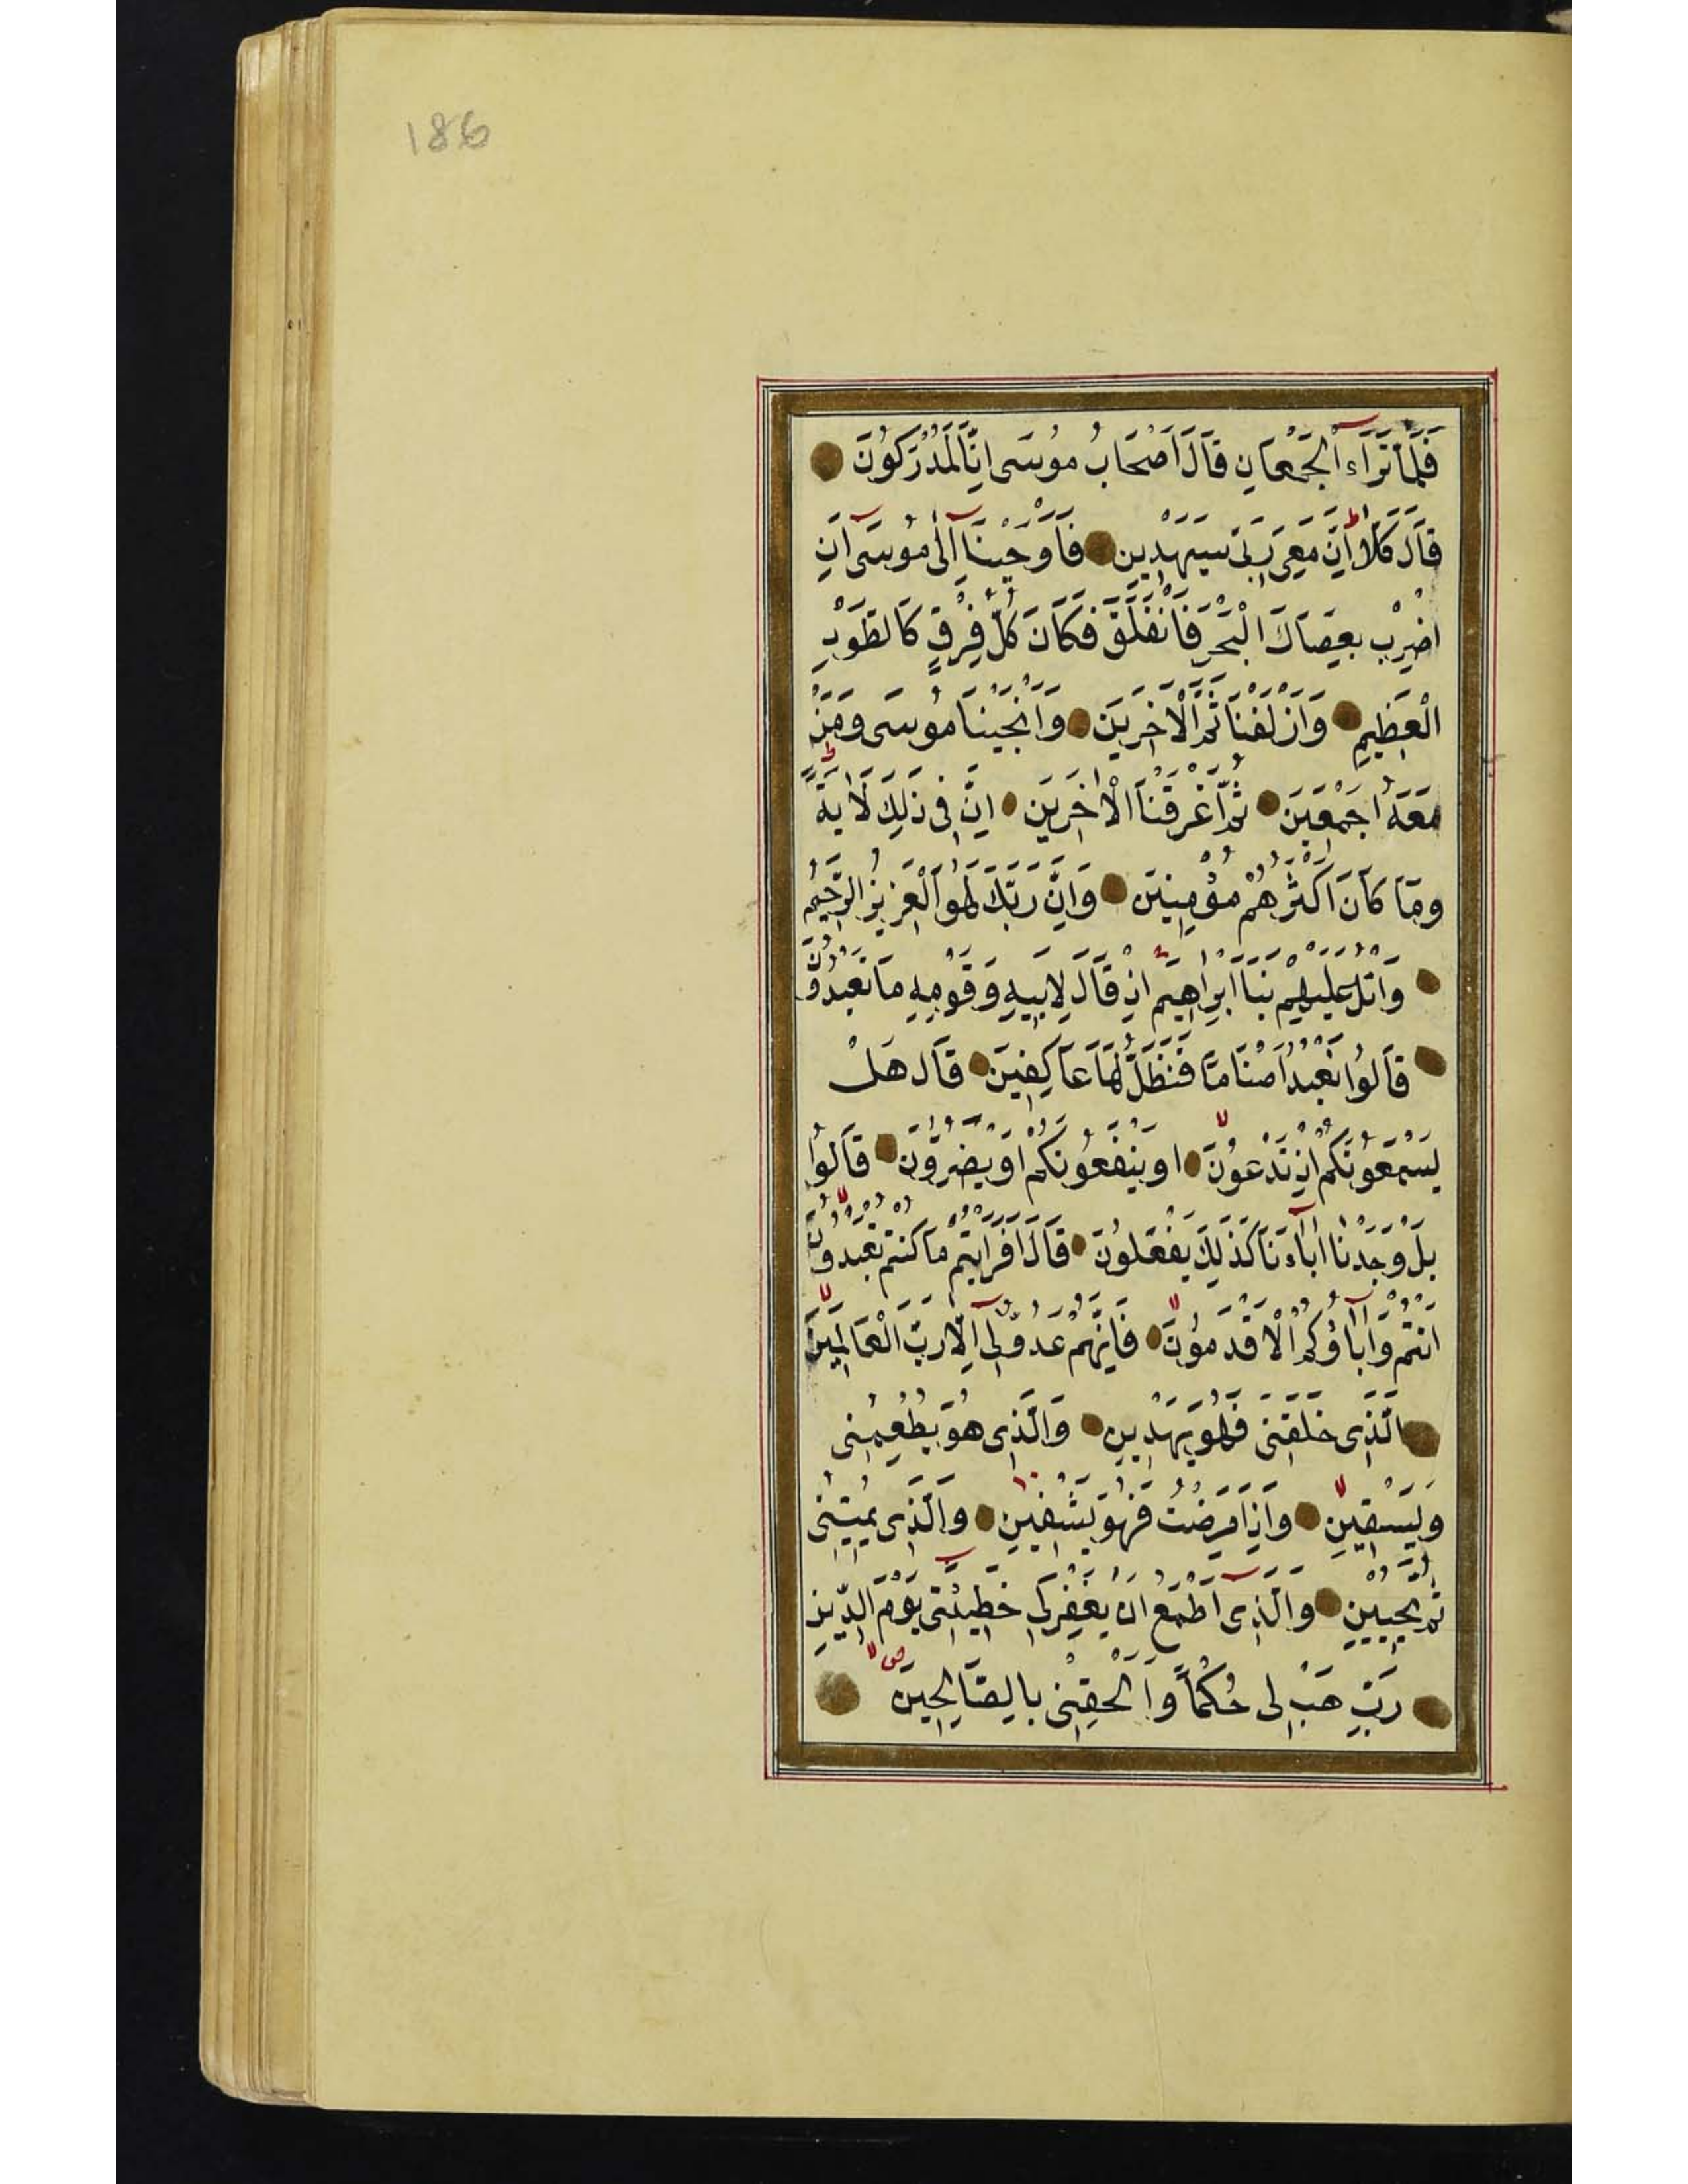 186
فَلَمَّا تَرَاءَ الْجَمْعَانِ قَالَ اَصْحَابُ مُوسَى اِنَّا لَمُدْرَكُونَ
قَالَ كَلَّا ط اِنَّ مَعِىَ رَبِّى سَيَهْدِينِ فَاَوْحَيْنَا اِلٰى مُوسَى اَنِ
اضْرِبْ بِعَصَاكَ الْبَحْرَ فَانْفَلَقَ فَكَانَ كُلُّ فِرْقٍ كَالطَّوْدِ
الْعَظِيمِ وَاَزْلَفْنَا ثَمَّ الْاٰخَرِينَ وَاَنْجَيْنَا مُوسَى وَمَنْ
مَعَهُ اَجْمَعِينَ ثُمَّ اَغْرَقْنَا الْاٰخَرِينَ اِنَّ فِى ذٰلِكَ لَاٰيَةً ط
وَمَا كَانَ اَكْثَرُهُمْ مُؤْمِنِينَ وَاِنَّ رَبَّكَ لَهُوَ الْعَزِيزُ الرَّحِيمُ
وَاتْلُ عَلَيْهِمْ نَبَاَ اِبْرَاهِيمَ اِذْ قَالَ لِاَبِيهِ وَقَوْمِهِ مَا تَعْبُدُونَ
قَالُوا نَعْبُدُ اَصْنَامًا فَنَظَلُّ لَهَا عَاكِفِينَ قَالَ هَلْ
يَسْمَعُونَكُمْ اِذْ تَدْعُونَ لا اَوْ يَنْفَعُونَكُمْ اَوْ يَضُرُّونَ قَالُوا
بَلْ وَجَدْنَا اٰبَاءَنَا كَذٰلِكَ يَفْعَلُونَ قَالَ اَفَرَاَيْتُمْ مَا كُنْتُمْ تَعْبُدُونَ لا
اَنْتُمْ وَاٰبَاؤُكُمُ الْاَقْدَمُونَ لا فَاِنَّهُمْ عَدُوٌّ لِى اِلَّا رَبَّ الْعَالَمِينَ لا
الَّذِى خَلَقَنِى فَهُوَ يَهْدِينِ وَالَّذِى هُوَ يُطْعِمُنِى
وَيَسْقِينِ لا وَاِذَا مَرِضْتُ فَهُوَ يَشْفِينِ وَالَّذِى يُمِيتُنِى
ثُمَّ يُحْيِينِ وَالَّذِى اَطْمَعُ اَنْ يَغْفِرَ لِى خَطِيئَتِى يَوْمَ الدِّينِ
رَبِّ هَبْ لِى حُكْمًا وَاَلْحِقْنِى بِالصَّالِحِينَ لا